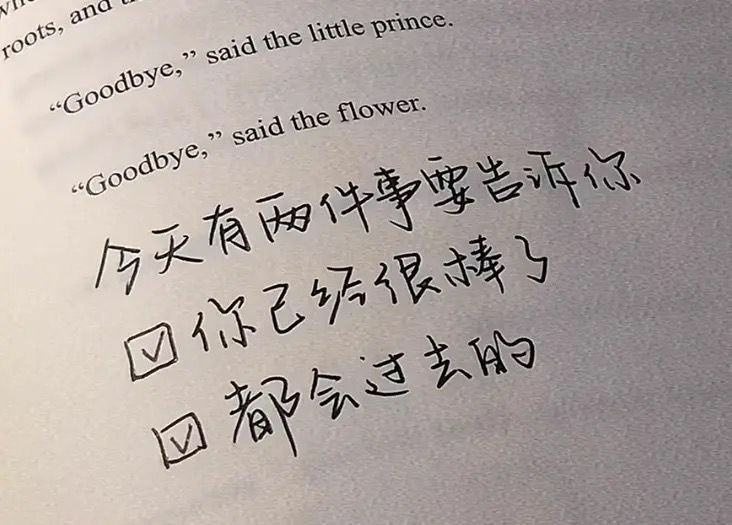 roots, and th
“Goodbye,” said the little prince.
“Goodbye,” said the flower.
今天有两件事要告诉你
你已经很棒了
都会过去的